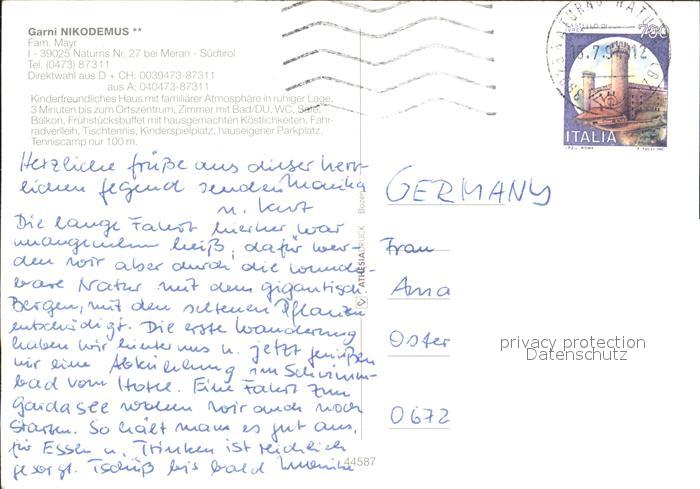 Garni NIKODEMUS **
Fam. Mayr
I - 39025 Naturns Nr. 27 bei Meran - Südtirol
Tel. (0473) 87311
Direktwahl aus D + CH: 0039473-87311
aus A: 040473-87311
Kinderfreundliches Haus mit familiärer Atmosphäre in ruhiger Lage,
3 Minuten bis zum Ortszentrum, Zimmer mit Bad/DU, WC, Safe,
Balkon, Frühstücksbuffet mit hausgemachten Köstlichkeiten, Fahr-
radverleih, Tischtennis, Kinderspielplatz, hauseigener Parkplatz,
Tenniscamp nur 100 m.
Herzliche Grüße aus dieser herr-
lichen Gegend senden Monika
u. Kurt
Die lange Fahrt hierher war
unangenehm heiß, dafür wer-
den wir aber durch die wunder-
bare Natur mit dem gigantisch
Bergen, mit den seltenen Pflanzen
entschädigt. Die erste Wanderung
haben wir hinter uns u. jetzt genießen
wir eine Abkühlung im Schwimm-
bad vom Hotel. Eine Fahrt zum
Gardasee wollen wir auch noch
starten. So hält man es gut aus,
für Essen u. Trinken ist reichlich
gesorgt. Tschüß bis bald Monika
44587
ATHESIADRUCK Bozen
750
ITALIA
I.P.Z.S. ROMA
GERMANY
Frau
Anna
Oster
0672
privacy protection
Datenschutz